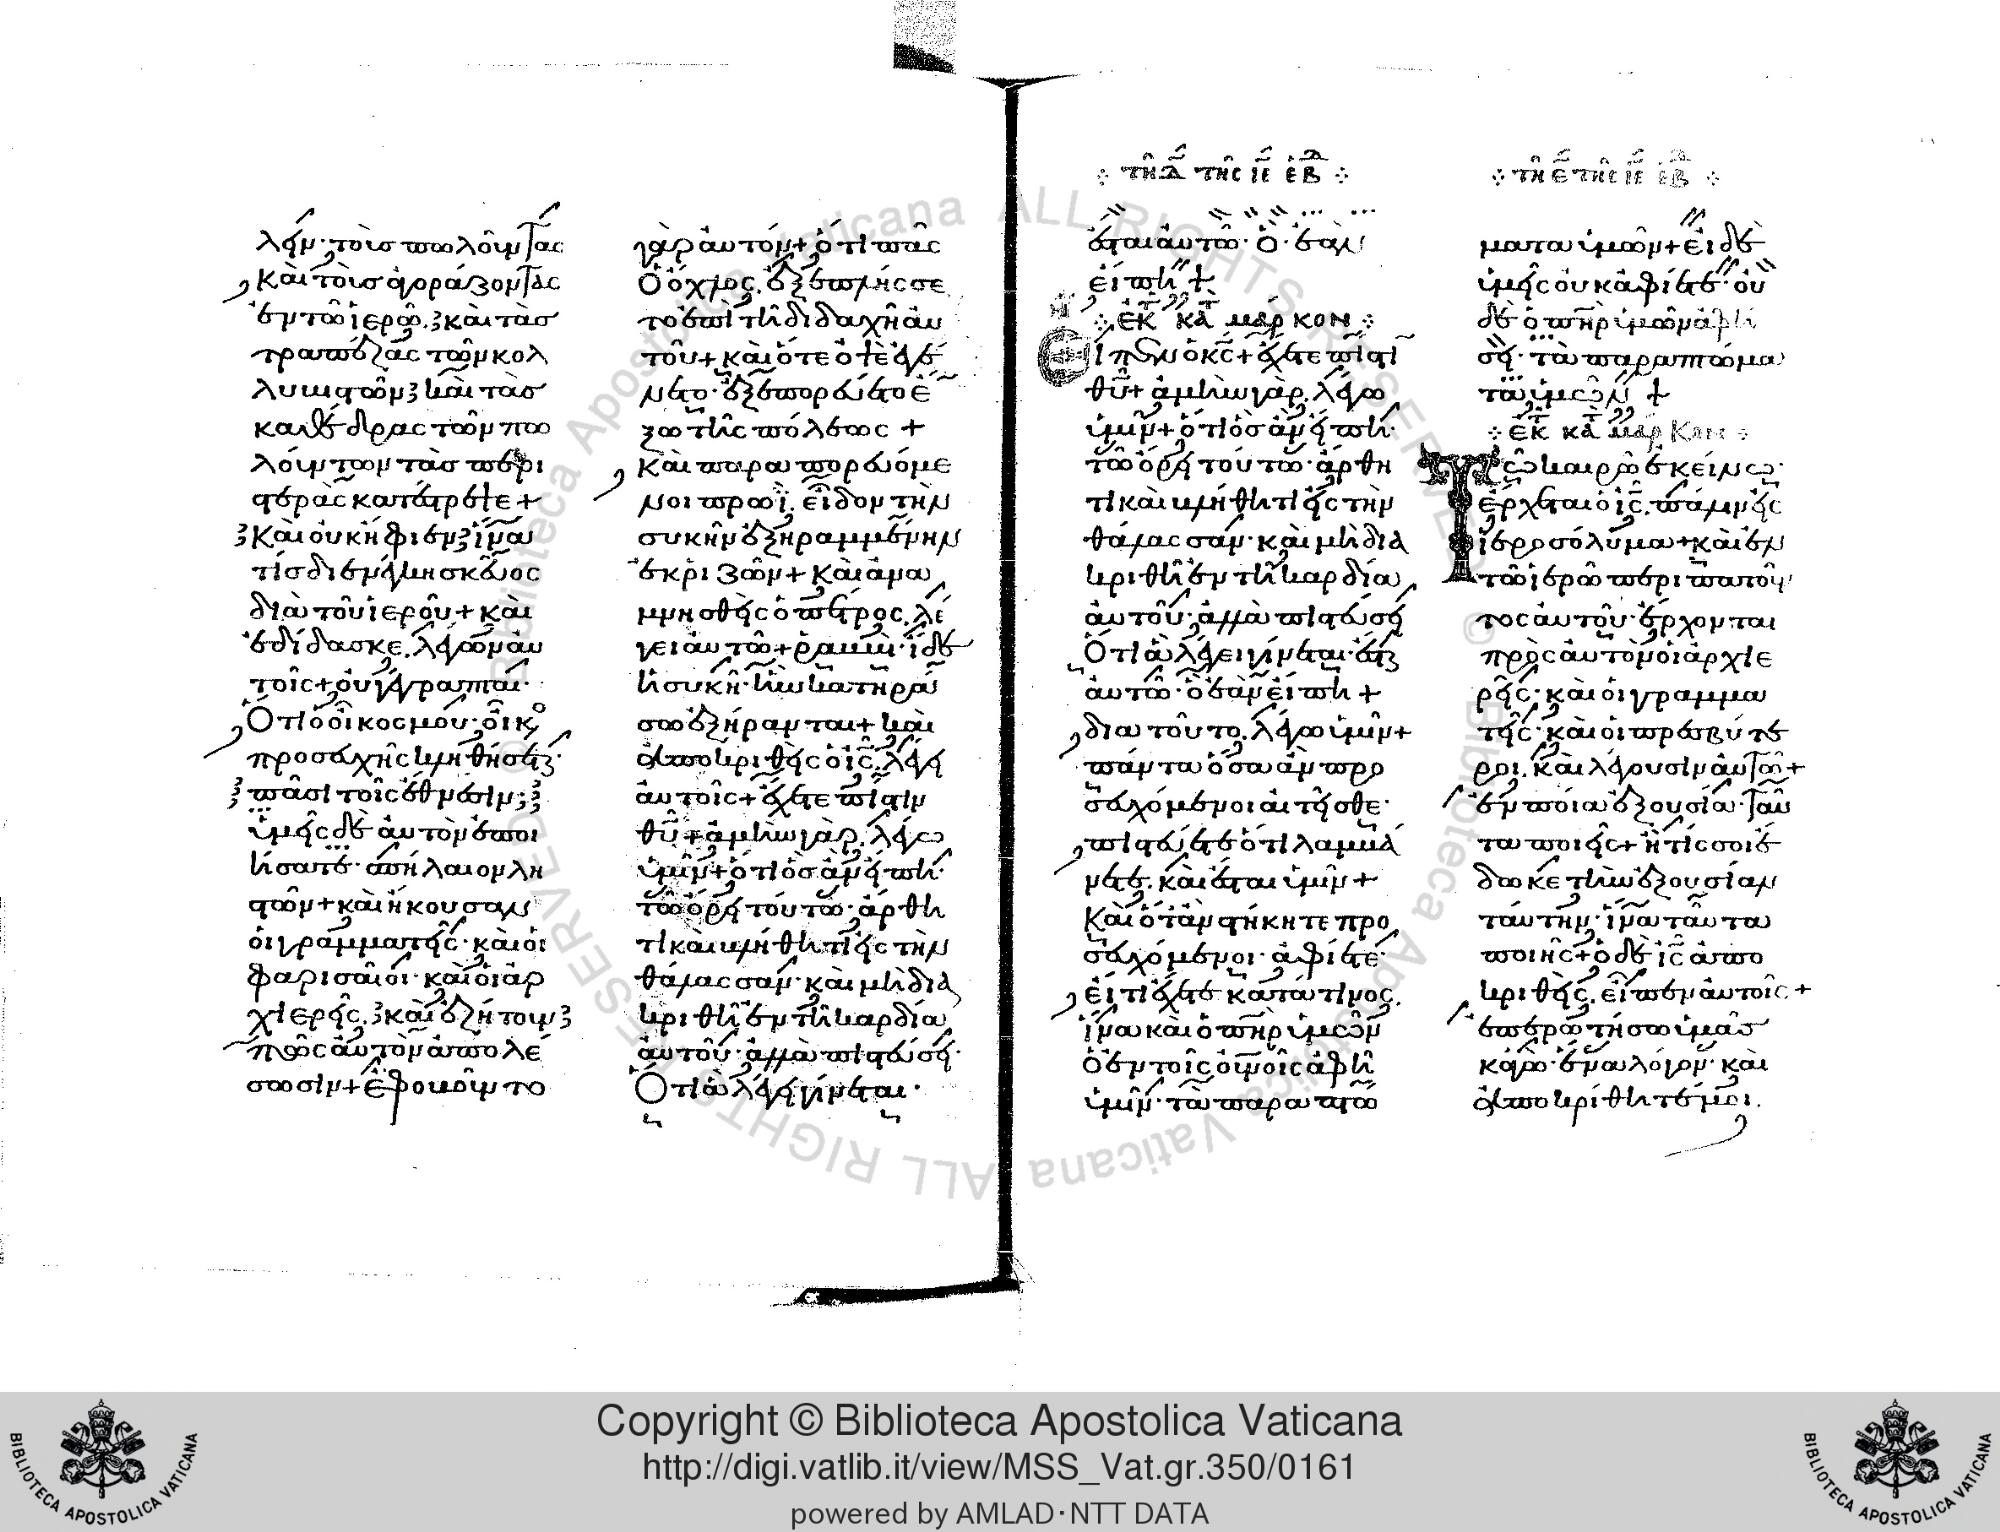 λεῖν· τοὺς πωλοῦντας
καὶ τοὺς ἀγοράζοντας
ἐν τῶ ἱερῶ, καὶ τὰς
τραπέζας τῶν κολ
λυβιστῶν καὶ τὰς
καθέδρας τῶν πω
λούντων τὰς περι
στερὰς κατέστρεψε +
Καὶ οὐκ ἤφιεν ἵνα
τίς διενέγκη σκεῦος
διὰ τοῦ ἱεροῦ + καὶ
ἐδίδασκε, λέγων αὐ
τοῖς + οὐ γέγραπται·
Ὅτι ὁ οἶκος μου· οἶκο
προσευχῆς κληθήσεται·
πᾶσι τοῖς ἔθνεσιν;
ὑμεῖς δὲ αὐτὸν ἐποι
ήσατε· σπήλαιον λη
στῶν + καὶ ἤκουσαν
οἱ γραμματεῖς· καὶ οἱ
φαρισαῖοι· καὶ οἱ ἀρ
χιερεῖς, καὶ ἐζήτουν
πῶς αὐτὸν ἀπολέ
σωσιν + ἐφοβοῦντο
γὰρ αὐτόν + ὅτι πᾶς
Ὁ ὄχλος, ἐξεπλήσσε
το ἐπὶ τῆ διδαχῆ αὐ
τοῦ + καὶ ὅτε ὀψὲ ἐγέ
νετο· ἐξεπορεύετο ἔ
ξω τῆς πόλεως +
Καὶ παραπορευόμε
νοι πρωῒ, εἶδον τὴν
συκῆν ἐξηραμμένην
ἐκ ριζῶν + Καὶ ἀνα
μνησθεὶς ὁ πέτρος, λέ
γει αὐτῶ + ῥαββὶ· ἴδε
ἡ συκῆ· ἣν κατηρά
σω ἐξήρανται + καὶ
ἀποκριθεὶς ὁ ις, λέγει
αὐτοῖς + ἔχετε πίστιν
θυ + ἀμὴν γὰρ, λέγω
ὑμῖν + ὅτι ὃς ἂν εἴπη·
τῶ ὄρει τούτω· ἄρθη
τι καὶ βλήθητι εἰς τὴν
θάλασσαν· καὶ μὴ δια
κριθῆ ἐν τῆ καρδία
αὐτοῦ· ἀλλὰ πιστεύσει·
Ὅτι ἃ λέγει γίνεται·
τῆ δ τῆς ιε ἑβδ
ἔσται αὐτῶ· ὃ· ἐὰν
εἴπη +
ἐκ κατ μάρκον
Εἶπεν ὁ κς + ἔχετε πίστι
θυ + ἀμὴν γὰρ, λέγω
ὑμῖν + ὅτι ὃς ἂν εἴπη·
τῶ ὄρει τούτω· ἄρθη
τι καὶ βλήθητι εἰς τὴν
θάλασσαν· καὶ μὴ δια
κριθῆ ἐν τῆ καρδία
αὐτοῦ· ἀλλὰ πιστεύση
Ὅτι ἃ λέγει γίνεται· ἔσται
αὐτῶ· ὃ ἐὰν εἴπη +
διὰ τοῦτο, λέγω ὑμῖν +
πάντα ὅσα ἂν προ
σευχόμενοι αἰτεῖσθε·
πιστεύετε ὅτι λαμβά
νετε, καὶ ἔσται ὑμῖν +
Καὶ ὅταν στήκητε προ
σευχόμενοι· ἀφίετε·
εἴ τι ἔχετε κατά τινος,
ἵνα καὶ ὁ πηρ ὑμῶν
ὁ ἐν τοῖς οὐνοῖς ἀφῆ
ὑμῖν· τὰ παραπτώ
τῆ ε τῆς ιε ἑβδ
ματα ὑμῶν + εἰ δὲ
ὑμεῖς οὐκ ἀφίετε· οὐ
δὲ ὁ πηρ ὑμῶν ἀφή
σει· τὰ παραπτώμα
τα ὑμῶν +
ἐκ κατ μάρκον
Τῶ καιρῶ ἐκείνω·
ἔρχεται ὁ ις, πάλιν εἰς
ἱεροσόλυμα + καὶ ἐν
τῶ ἱερῶ περιπατοῦν
τος αὐτοῦ· ἔρχονται
πρὸς αὐτὸν οἱ ἀρχιε
ρεῖς· καὶ οἱ γραμμα
τεῖς· καὶ οἱ πρεσβύτε
ροι, καὶ λέγουσιν αὐτῶ +
ἐν ποία ἐξουσία· ταῦ
τα ποιεῖς + ἢ τίς σοι ἔ
δωκε τὴν ἐξουσίαν
ταύτην· ἵνα ταῦτα
ποιῆς + ὁ δὲ ις ἀπο
κριθεὶς, εἶπεν αὐτοῖς +
ἐπερωτήσω ὑμᾶς
κἀγὼ· ἕνα λόγον· καὶ
ἀποκρίθητέ μοι,
Copyright © Biblioteca Apostolica Vaticana
http://digi.vatlib.it/view/MSS_Vat.gr.350/0161
powered by AMLAD·NTT DATA